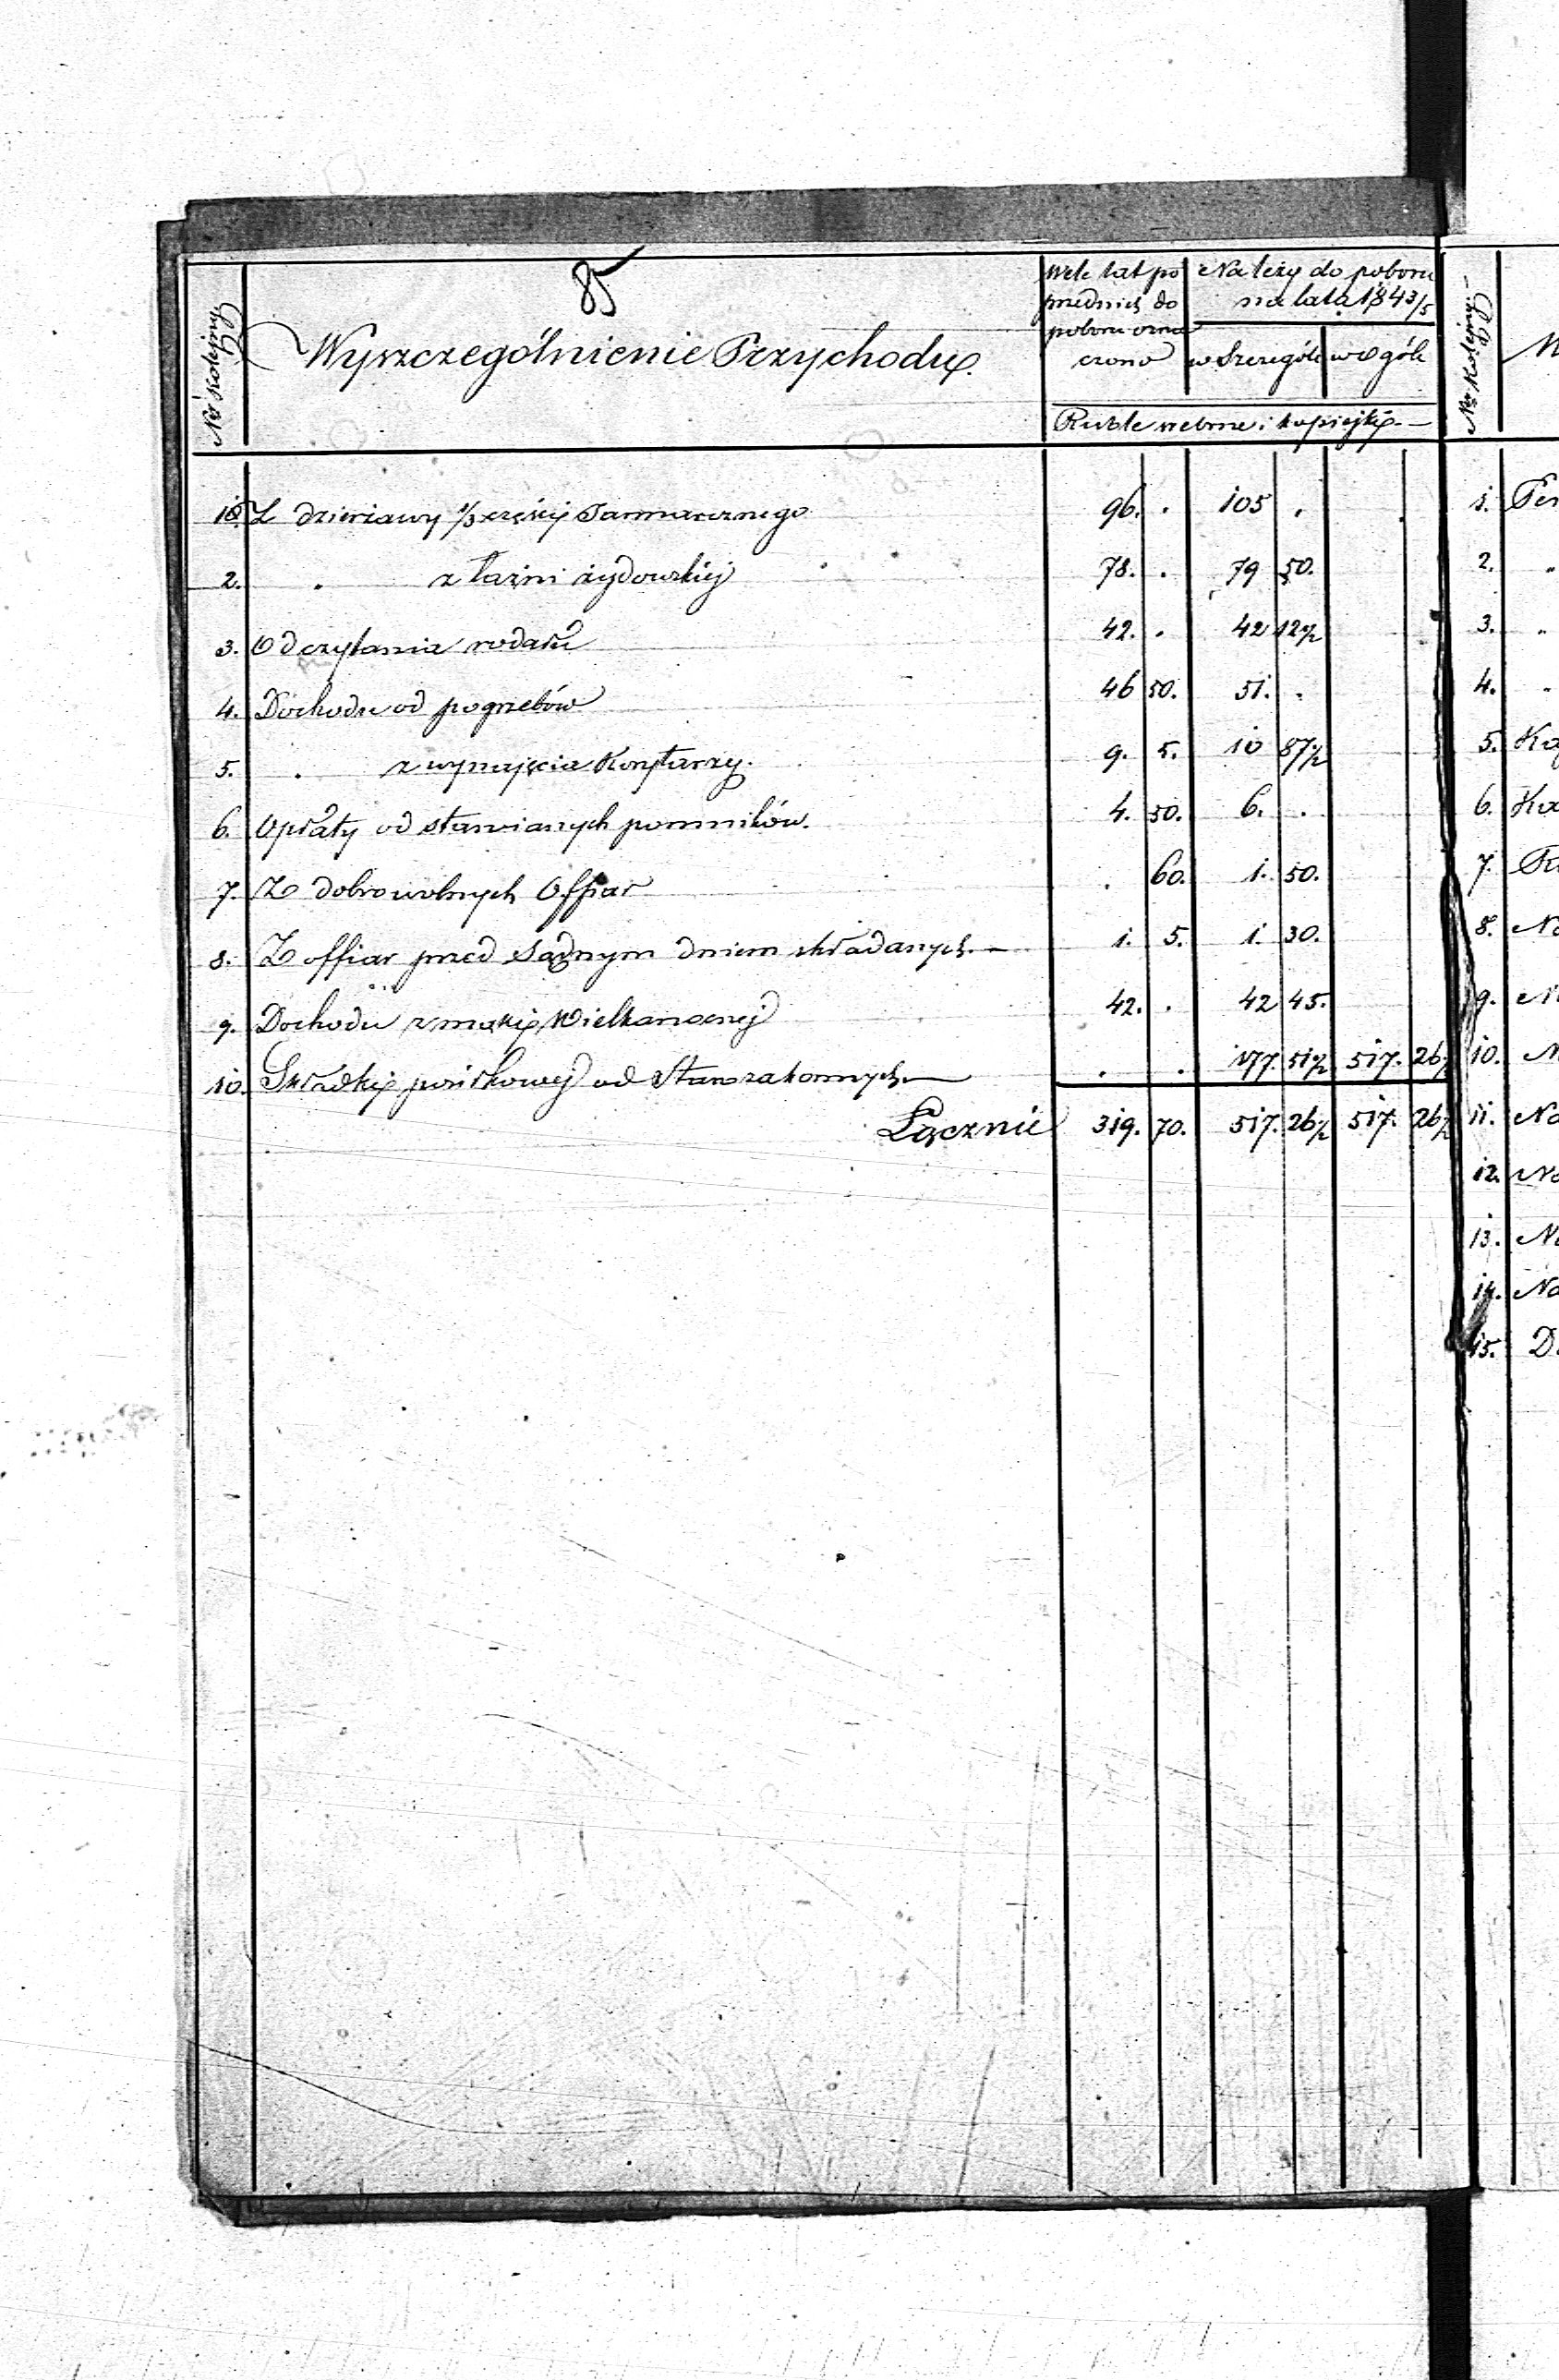 85
No kolejny
Wyszczególnienie Przychodu.
w ele lat po
przednich do
poboru ozna
czono
Należy do poboru
na lata 1843/5
w Szczególe
w ogóle
Ruble srebrne i kopiejki. —
1. Z dzierżawy 1/3 części Jarmarcznego 96. . 105 .
2. . z łaźni żydowskiej 78. . 79 50.
3. Od czytania rodału 42. . 42 12½
4. Dochodu od pogrzebów 46 50. 51. .
5. . z wynajęcia Korytarzy. 9. 5. 10 87½
6. Opłaty od stawianych pomników. 4. 50. 6. .
7. Z dobrowolnych Offiar . 60. 1. 50.
8. Z offiar przed sądnym dniem składanych. — 1. 5. 1. 30.
9. Dochodu z mąki Wielkanocnej 42. . 42 45.
10. Składki posiłkowej od Starozakonnych — . . 177. 51½ 517. 26½
Łącznie 319. 70. 517. 26½ 517. 26½
No Kolejny
1.
2. "
3. "
4. "
5.
6.
7.
8.
9.
10.
11.
12.
13.
14.
15.